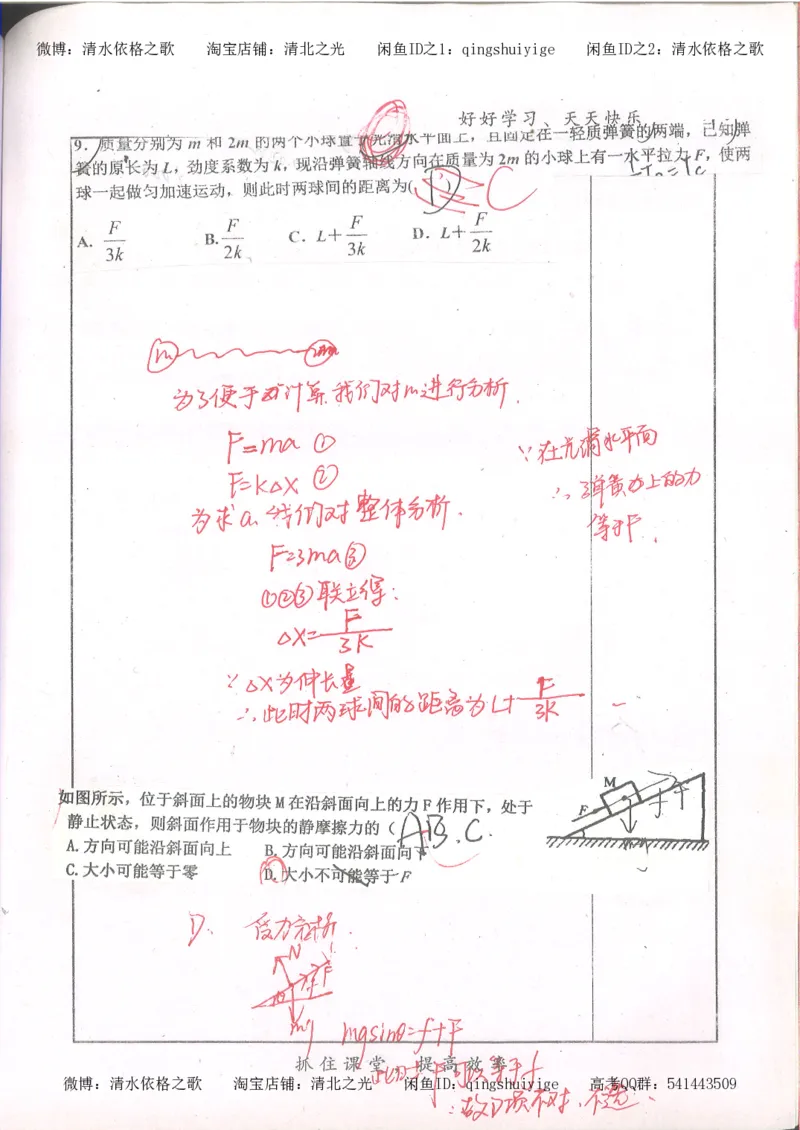 微博：清水依格之歌 淘宝店铺：清北之光 闲鱼ID之1：qingshuiyige 闲鱼ID之2：清水依格之歌
好好学习、天天快乐
9．质量分别为 m 和 2m 的两个小球置于光滑水平面上，且固定在一轻质弹簧的两端，已知弹
簧的原长为 L，劲度系数为 k，现沿弹簧轴线方向在质量为 2m 的小球上有一水平拉力 F，使两
球一起做匀加速运动，则此时两球间的距离为( D ) C
A. F/3k B. F/2k C. L+F/3k D. L+F/2k
m 2m
为了便于计算,我们对m进行分析.
F=ma ①
F=kΔx ②
∵在光滑水平面
∴弹簧力上的力
等于F.
为求a,我们对整体分析.
F=3ma③
①②③联立得:
Δx=F/3K
∵Δx为伸长量
∴此时两球间的距离为L+F/3K
如图所示，位于斜面上的物块 M 在沿斜面向上的力 F 作用下，处于
静止状态，则斜面作用于物块的静摩擦力的（ AB.C.
A.方向可能沿斜面向上 B.方向可能沿斜面向下
C.大小可能等于零 D.大小不可能等于 F
M
F
D. 受力分析
N
F
mg
mgsinθ=f+F
抓住课堂 提高效率
微博：清水依格之歌 淘宝店铺：清北之光 闲鱼ID：qingshuiyige 高考QQ群：541443509
∴故D项不对,不选.